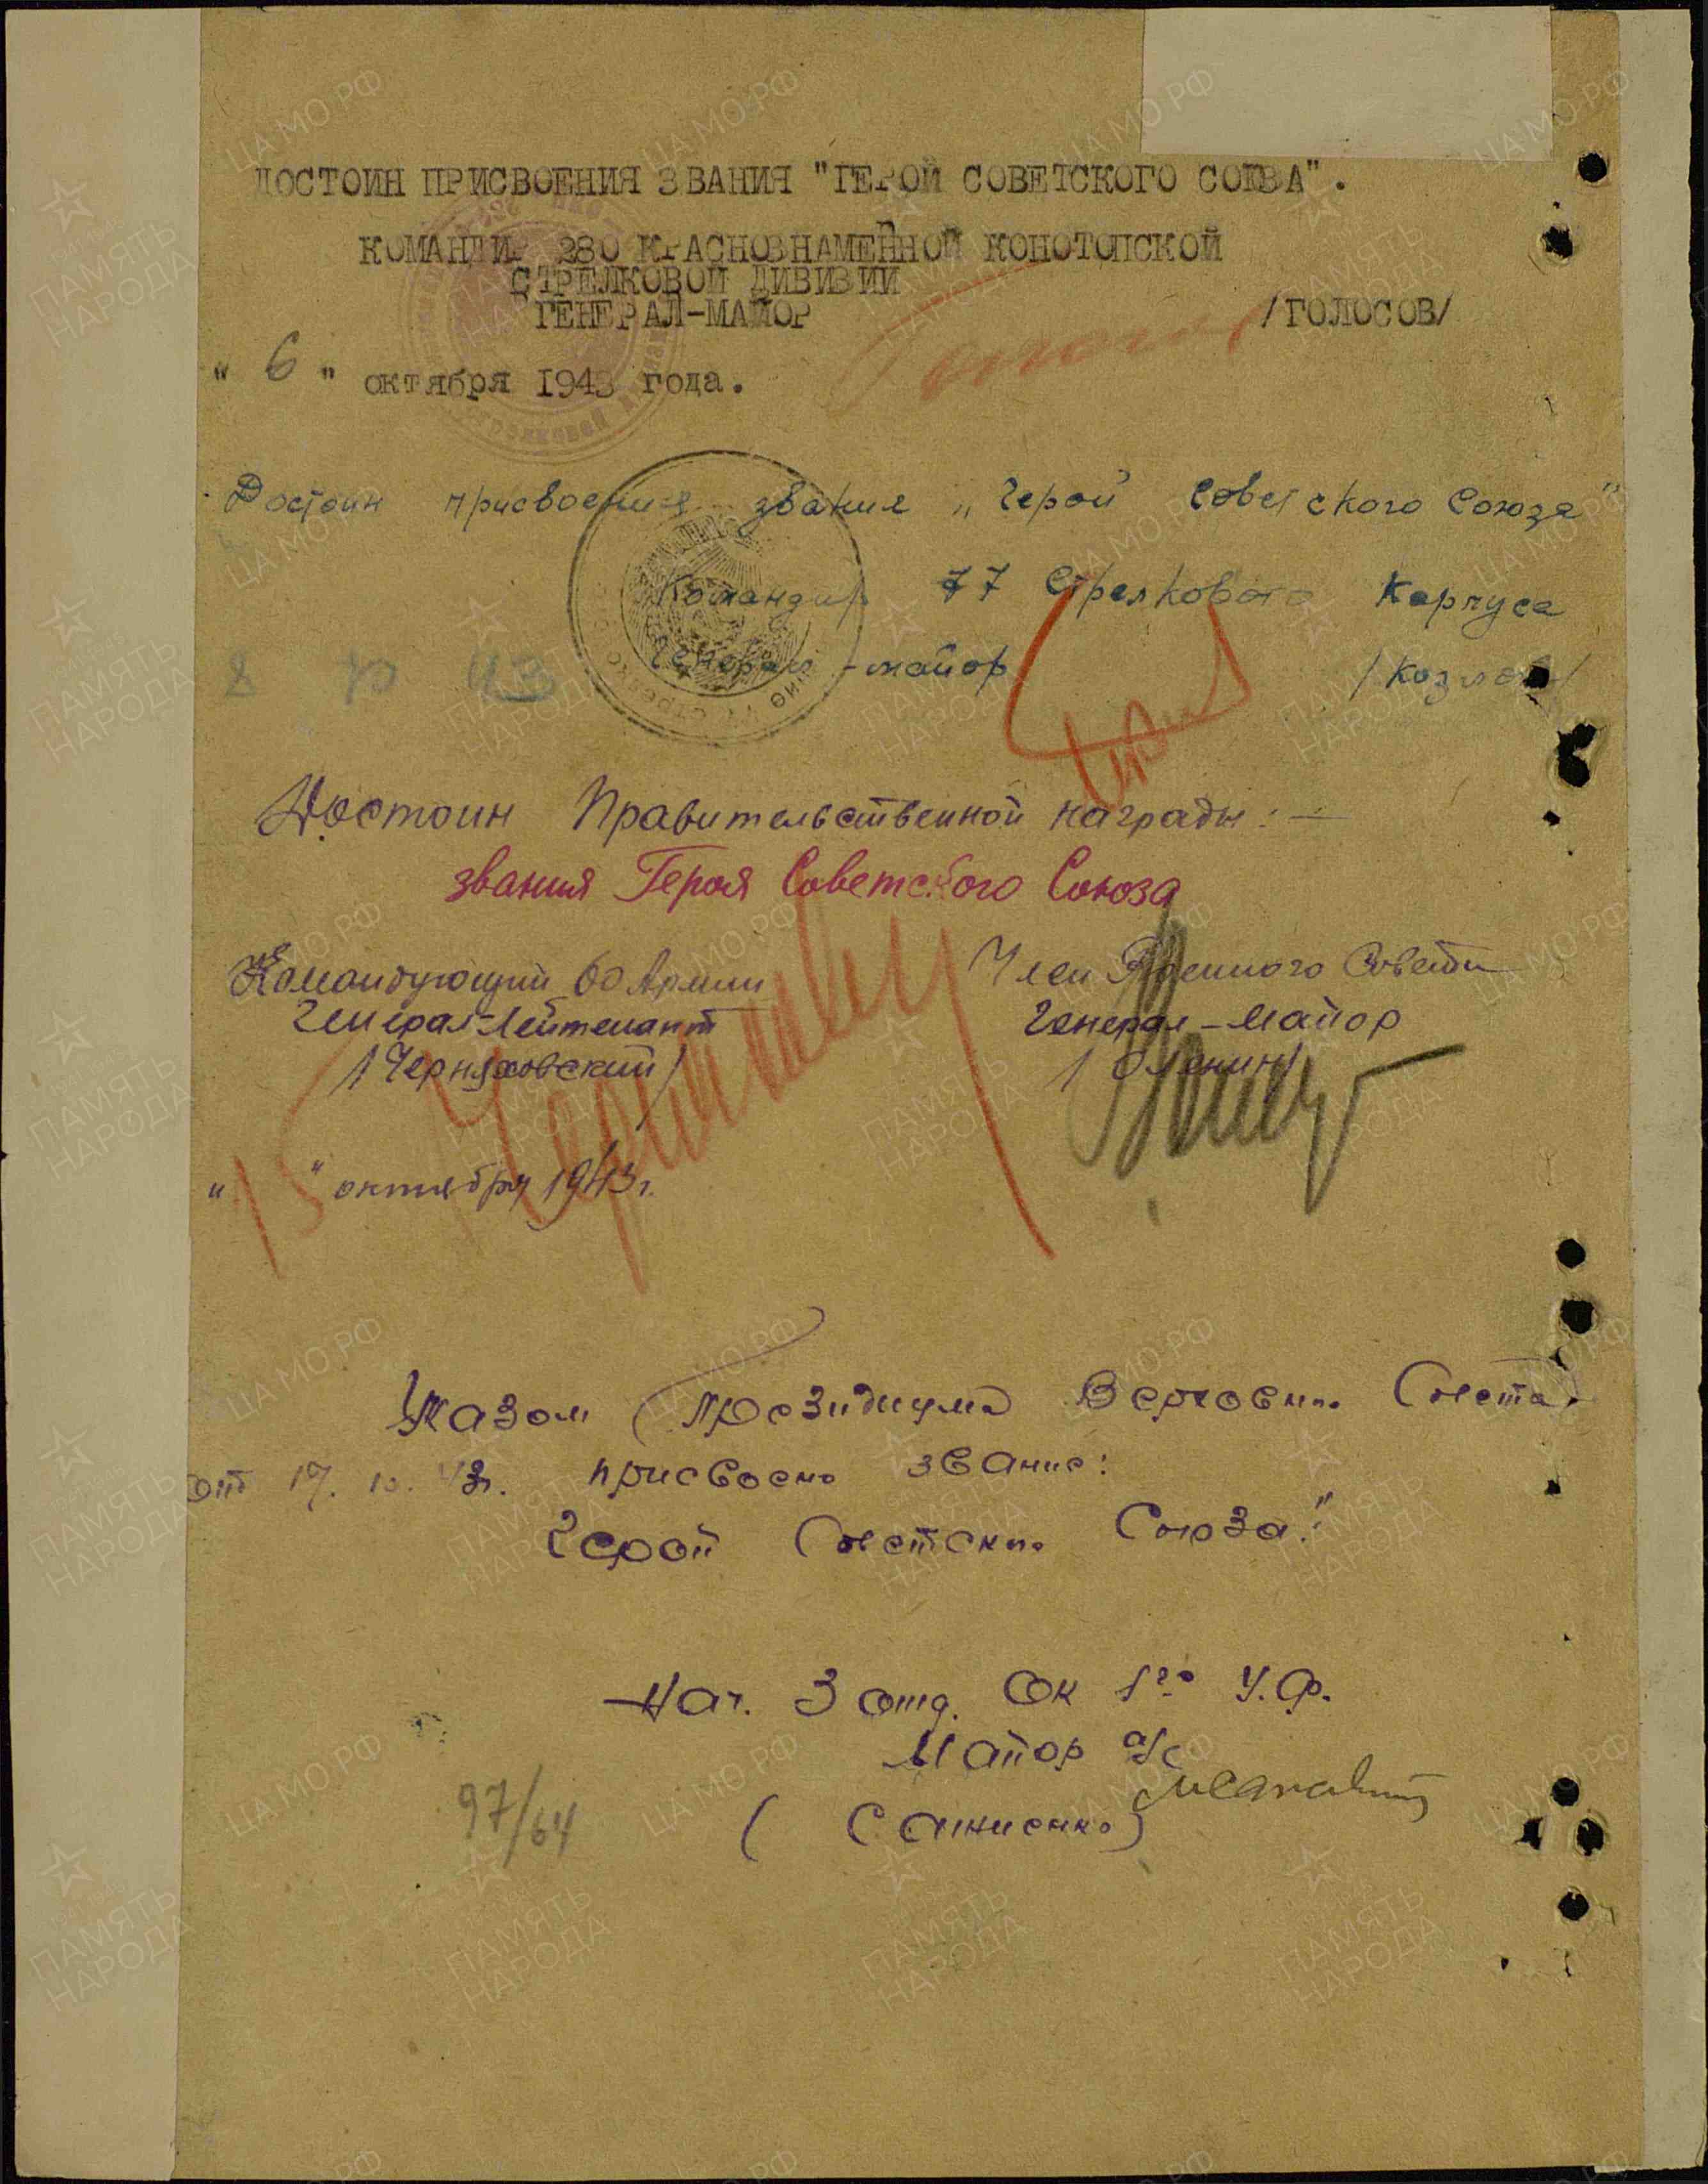 ДОСТОИН ПРИСВОЕНИЯ ЗВАНИЯ "ГЕРОЙ СОВЕТСКОГО СОЮЗА".
КОМАНДИР 280 КРАСНОЗНАМЕННОЙ КОНОТОПСКОЙ
СТРЕЛКОВОЙ ДИВИЗИИ
ГЕНЕРАЛ-МАЙОР /ГОЛОСОВ/
" 6 " октября 1943 года.
Достоин присвоения звания „Герой Советского Союза"
Командир 77 Стрелкового Корпуса
Генерал-майор /Козлов/
8 10 43
Достоин Правительственной награды: —
звания Героя Советского Союза
Командующий 60 Армии Член Военного Совета
Генерал-Лейтенант Генерал-Майор
/Черняховский/ /Оленин/
" 15 " октября 1943 г.
Указом Президиума Верховно. Совета
от 17. 10. 43г. присвоено звание:
Герой Советско. Союза."
Нач. 3 отд. ОК 1го У.Ф.
Майор а/с
97/64
ЦА МО РФ
ПАМЯТЬ НАРОДА